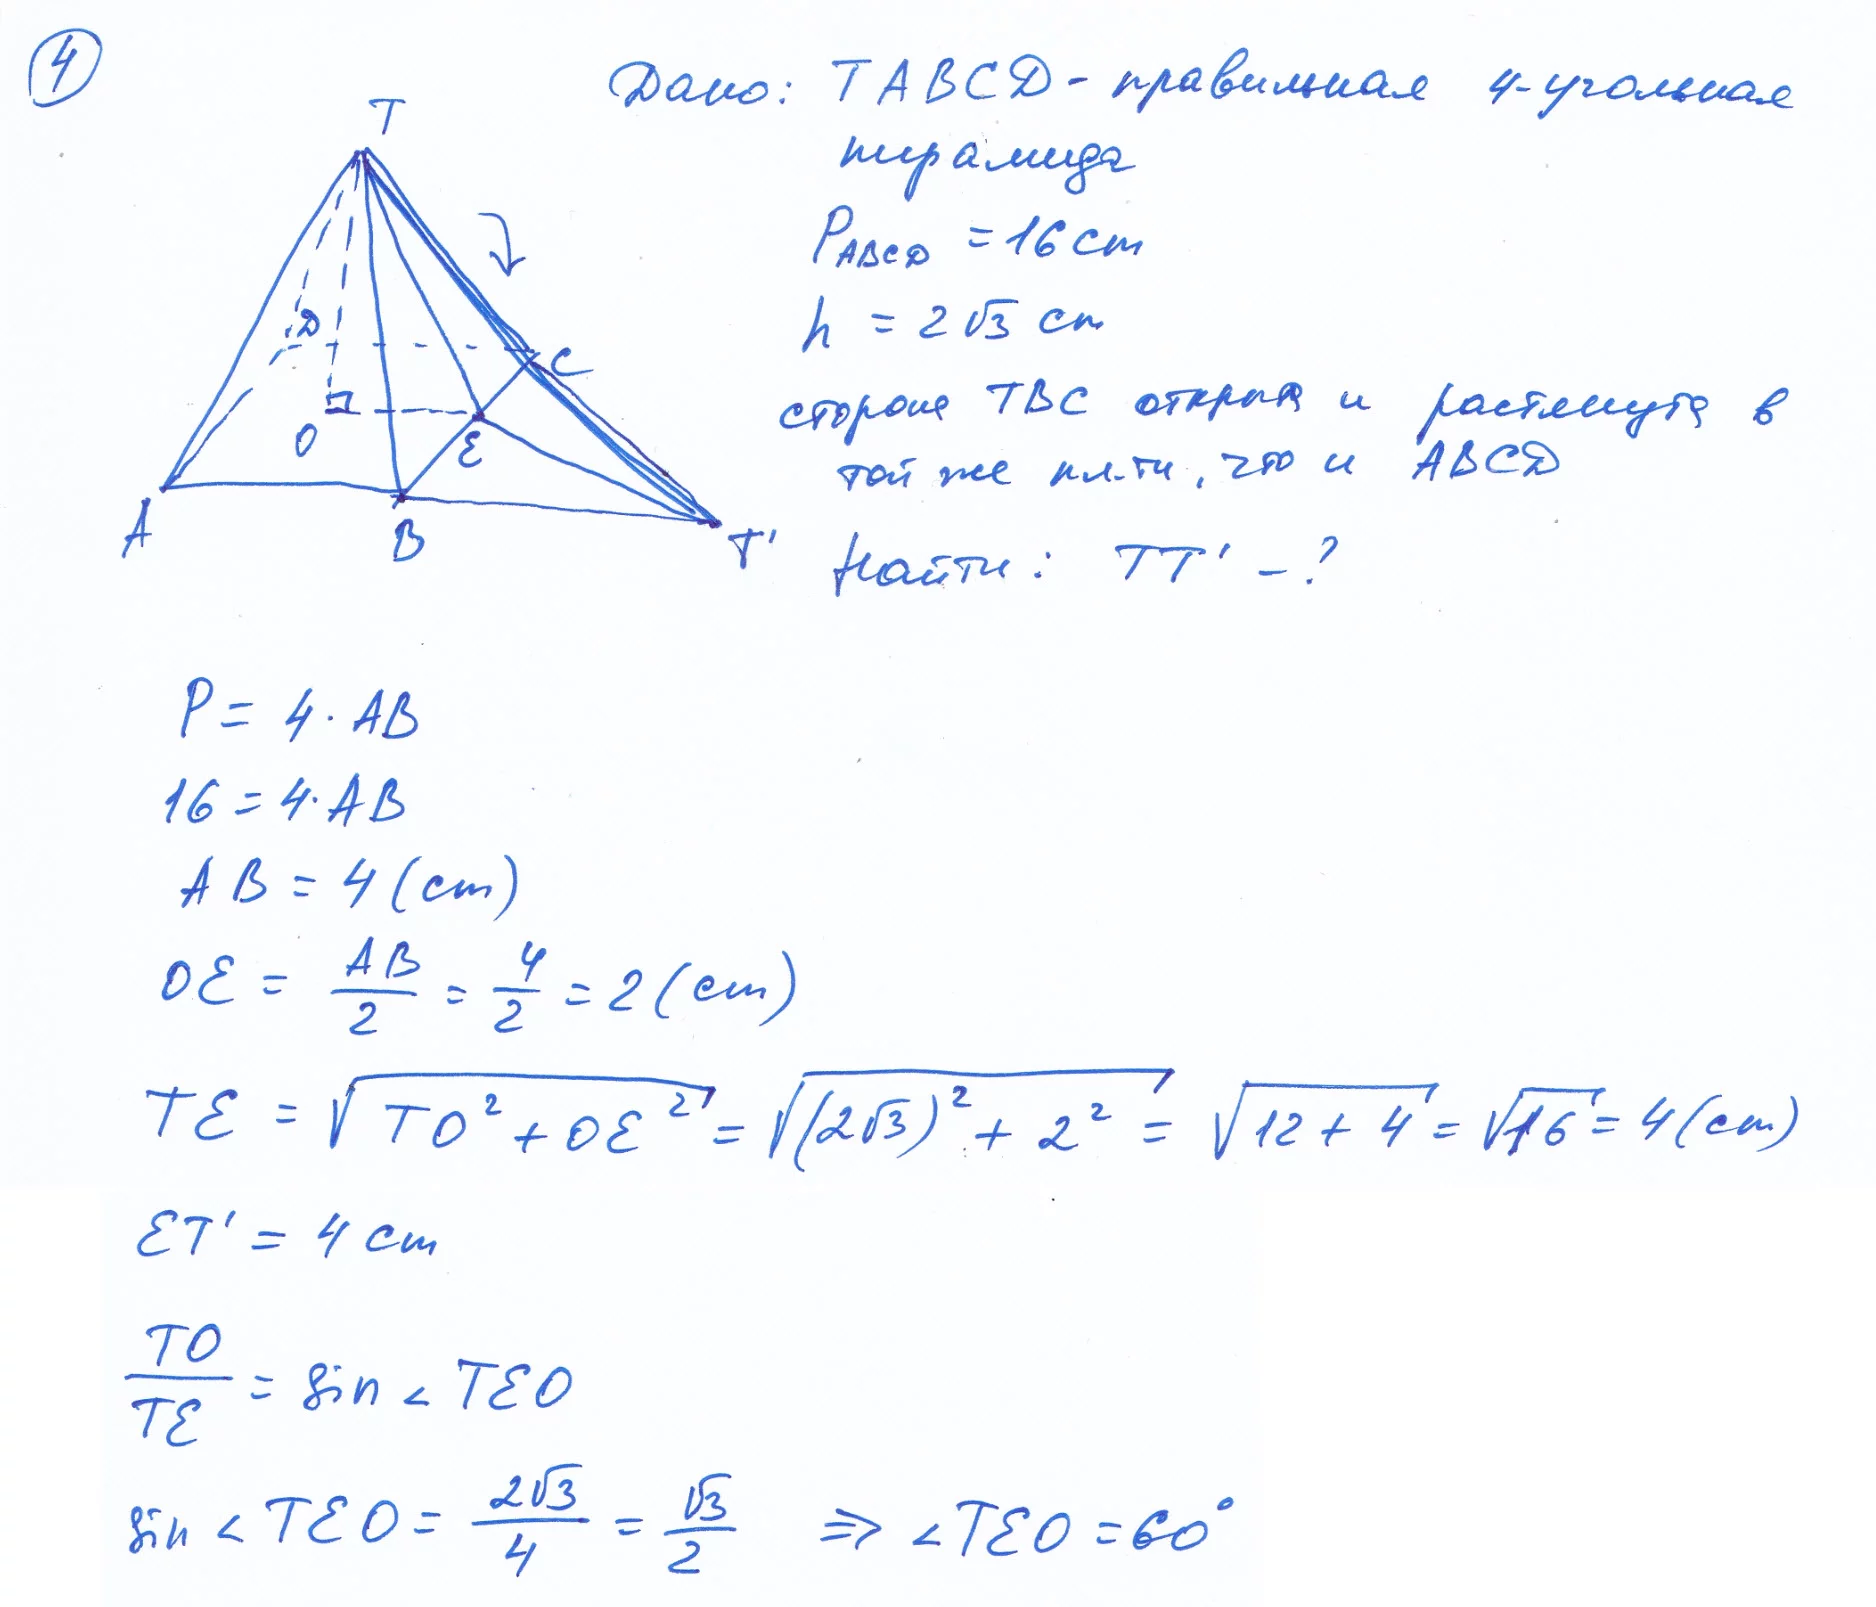 4
Дано: TABCD - правильная 4-угольная
пирамида
P ABCD = 16 cm
h = 2√3 cm
сторона TBC открыта и растянута в
той же пл-ти, что и ABCD
Найти: TT' - ?
T
D
C
O
E
A
B
T'
P = 4 · AB
16 = 4 · AB
AB = 4 (cm)
OE = AB/2 = 4/2 = 2 (cm)
TE = √(TO² + OE²) = √((2√3)² + 2²) = √(12 + 4) = √16 = 4 (cm)
ET' = 4 cm
TO/TE = sin ∠ TEO
sin ∠ TEO = 2√3/4 = √3/2 ⇒ ∠TEO = 60°